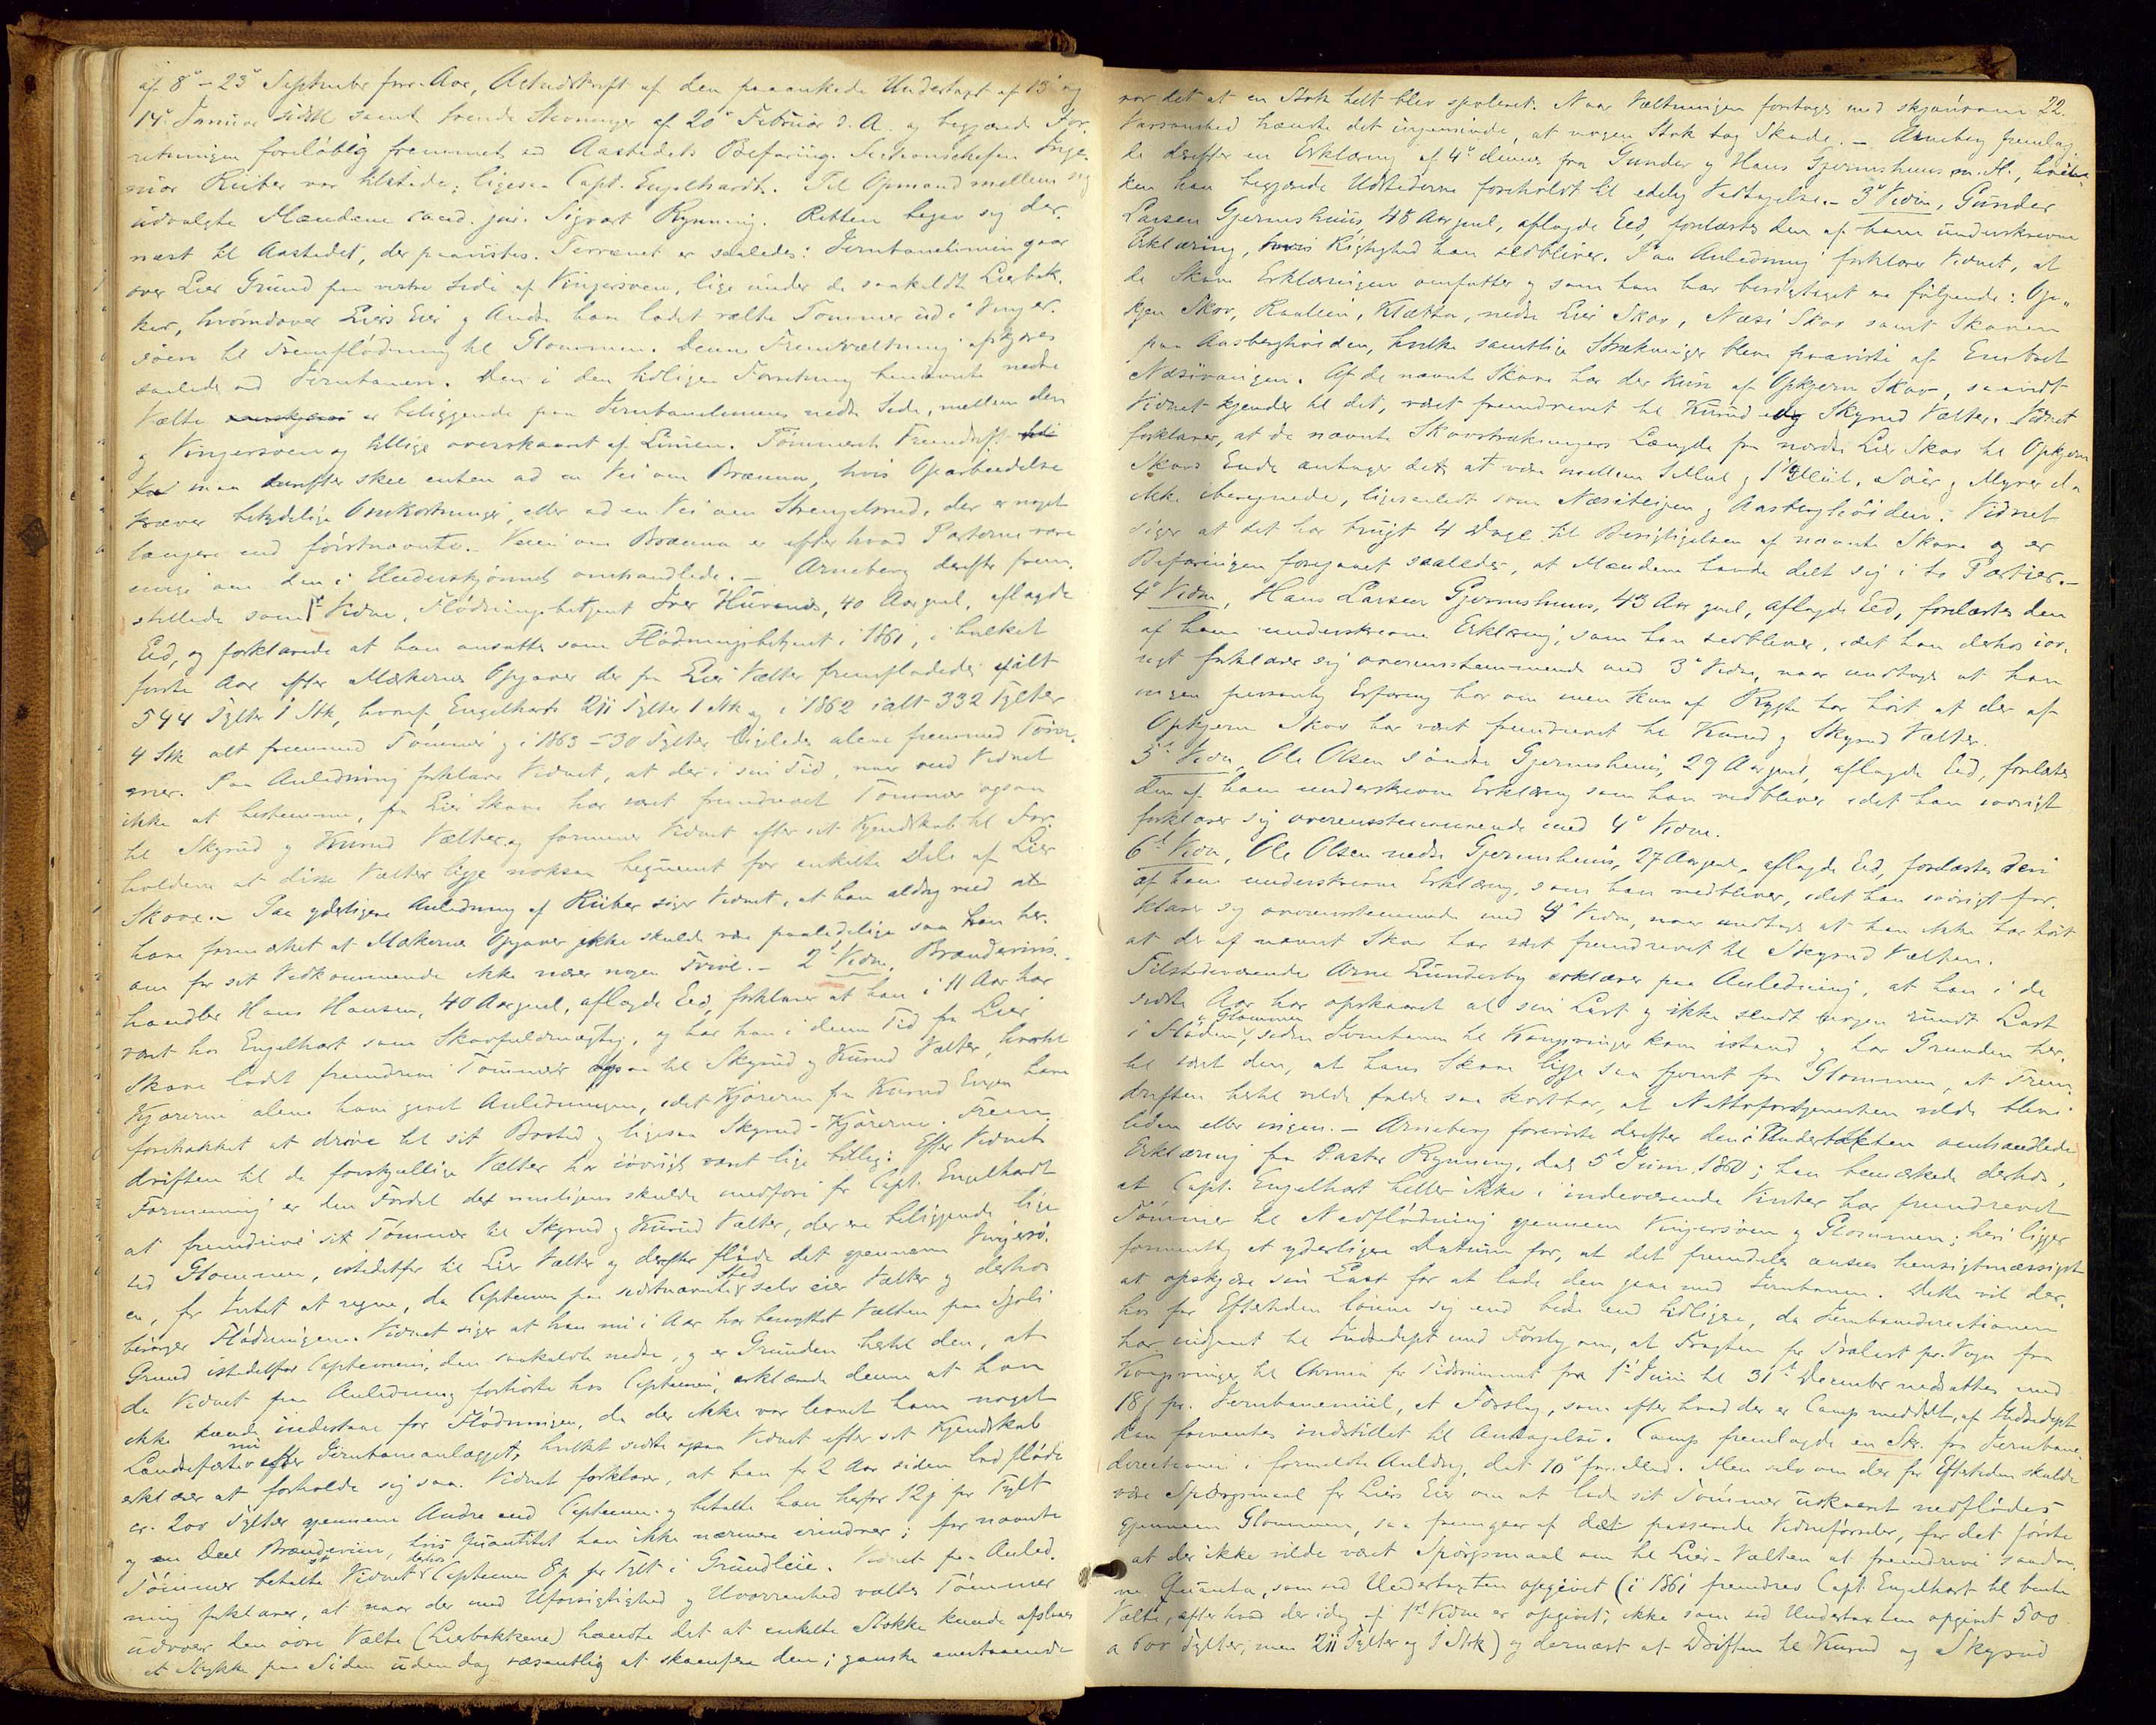 af 8de - 23de September forr. Aar, Actudskrift af den paaankede Undertaxt af 13de og
14de Januar sidstl. samt trende Stevninger af 20de Februar d. A. og begjærede For-
retningen foreløbig fremmet ved Aastedets Befaring. Sectionschefen Inge-
niør Rüber var tilstede; ligesaa Capt. Engelhardt. Til Opmand mellem sig
udvalgte Mændene cand. jur. Sigvart Rynning. Retten begav sig der-
næst til Aastedet, der paavistes. Terrænet er saaledes: Jernbanelinien gaar
over Lier Grund paa vestre Side af Vingersøen, lige under de saakaldte Lierbak-
ker, hvorudover Liers Eier og Andre have ladet vælte Tømmer ud i Vinger-
søen til Fremflødning til Glommen. Denne Fremvæltning afskjæres
saaledes ved Jernbanen. Den i den tidligere Forretning benævnte nedre
Vælte er beliggende paa Jernbaneliniens nedre Side, mellem den
og Vingersøen og tillige overskaaret af Linien. Tømmerets Fremdrift
maa herefter skee enten ad en Vei om Brænna, hvis Oparbeidelse
kræver betydelige Omkostninger, eller ad en Vei om Strengelsrud, der er noget
længere end førstnævnte. Veien om Brænna er efter hvad Parterne vare
enige om den i Underskjønnet omhandlede. - Arneberg derefter frem-
stillede som 1ste Vidne, Flødningsbetjent Iver Hurrenes, 40 Aar gml., aflagde
Eed, og forklarede at han ansattes som Flødningsbetjent i 1861, i hvilket
første Aar efter Mærkernes Opgaver der fra Lier Vælter fremflødedes ialt
544 Tylter 1 Stk, hvoraf Engelharts 211 Tylter 1 Stk og i 1862 ialt 332 Tylter
4 Stk alt fremmed Tømmer og i 1863 - 30 Tylter ligeledes alene fremmed Tøm-
mer. Paa Anledning forklarer Vidnet, at der i sin Tid, naar ved Vidnet
ikke at bestemme, fra Lier Skove har været fremdrevet Tømmer ogsaa
til Skyrud og Kurud Vælter og formener Vidnet efter sit Kjendskab til For-
holdene at disse Vælter ligge noksaa beqvemt for enkelte Dele af Lier
Skove. - Paa yderligere Anledning af Rüber siger Vidnet, at han aldrig ved at
have formærket at Mærkernes Opgaver ikke skulde være paalidelige saa han her-
om for sit Vedkommende ikke nærer nogen Tvivl. - 2det Vidne, Brændevins-
handler Hans Hansen, 40 Aar gml., aflagde Eed, forklarer at han i 11 Aar har
været hos Engelhart som Skovfuldmægtig, og har han i denne Tid fra Lier
Skove ladet fremdrive Tømmer ogsaa til Skyrud og Kurud Vælter, hvortil
Kjørerne alene have givet Anledningen, idet Kjørerne fra Kurud Engen have
foretrukket at drive til sit Bosted og ligesaa Skyrud-Kjørerne. Frem-
driften til de forskjellige Vælter har iøvrigt været lige billig. Efter Vidnets
Formening er den Fordel det muligens skulde medføre for Capt. Engelhardt
at fremdrive sit Tømmer til Skyrud og Kurud Vælter, der ere beliggende lige
ved Glommen, istedetfor til Lier Vælter og derefter fløde det gjennem Vingersø-
en, for Intet at regne, da Capteinen paa sidstnævnte Sted selv eier Vælter og derhos
besørger Flødningen. Vidnet siger at han nu i Aar har benyttet Vælten paa Gjoli
Grund istedetfor Capteinens, den saakaldte nedre, og er Grunden hertil den, at
da Vidnet paa Anledning forhørte hos Capteinen, erklærede denne at han
ikke kunde indestaae for Flødningen, da der ikke var levnet ham noget
Landsfæste nu efter Jernbaneanlægget, hvilket sidste ogsaa Vidnet efter sit Kjendskab
erklærer at forholde sig saa. Vidnet forklarer, at han for 2 Aar siden lod fløde
cr. 200 Tylter gjennem Andre end Capteinen og betalte han herfor 12 s pr Tylt
og en Deel Brændeviin, hvis Quantitet han ikke nærmere erindrer; for nævnte
Tømmer betalte Vidnet derhos Capteinen 8 s pr Tylt i Grundleie. Vidnet paa Anled-
ning forklarer, at naar der med Uforsigtighed og Uvorrenhed væltes Tømmer
udover den øvre Vælte (Lierbakkene) hændte det at enkelte Stokke kunde afslaaes
et Stykke paa Siden uden dog væsentlig at skamfere dem; ganske enestaaende
22.
var det at en Stok helt blev spoleret. Naar Væltningen foretoges med skjønsom
Varsomhed hændte det ingensinde, at nogen Stok tog Skade. - Arneberg fremlag-
de derefter en Erklæring af 4de dennes fra Gunder og Hans Gjermshuus m. Fl., hvil-
ken han begjærede Udstederne foreholdt til edelig Vedtagelse. - 3die Vidne, Gunder
Larsen Gjermshuus, 48 Aar gml., aflagde Eed, forelæstes den af ham underskrevne
Erklæring, hvis Rigtighed han vedbliver. Paa Anledning forklarer Vidnet, at
de Skove Erklæringen omfatter og som han har besigtiget ere følgende: Op-
kjern Skov, Raalien, Klætten, nedre Lier Skov, Næsi Skov samt Skoven
paa Aasberghøiden, hvilke samtlige Strækninger bleve paaviste af Embret
Næsivangen. Af de nævnte Skove har der kun af Opkjern Skov, saavidt
Vidnet kjender til det, været fremdrevet til Kurud og Skyrud Vælter. Vidnet
forklarer, at de nævnte Skovstrækningers Længde fra nordre Lier Skov til Opkjern
Skovs Ende antages det at være mellem 1 Miil og 1 1/4 Miil, Søer og Myrer da
ikke iberegnede, ligesaalidt som Næsiteigen og Aasberghøiden. Vidnet
siger at det har brugt 4 Dage til Besigtigelsen af nævnte Skove og er
Befaringen foregaaet saaledes, at Mændene havde delt sig i to Partier. -
4de Vidne, Hans Larsen Gjermshuus, 43 Aar gml., aflagde Eed, forelæstes den
af ham underskrevne Erklæring, som han vedbliver, idet han derhos iøv-
rigt forklarer sig overensstemmende med 3die Vidne, naar undtages at han
ingen personlig Erfaring har om men kun af Rygte har hørt at der af
Opkjern Skov har været fremdrevet til Kurud og Skyrud Vælter.
5te Vidne, Ole Olsen søndre Gjermshuus, 29 Aar gml., aflagde Eed, forelæstes
den af ham underskrevne Erklæring som han vedbliver idet han iøvrigt
forklarer sig overensstemmende med 4de Vidne.
6te Vidne, Ole Olsen nedre Gjermshuus, 27 Aar gml., aflagde Eed, forelæstes den
af ham underskrevne Erklæring, som han vedbliver, idet han iøvrigt for-
klarer sig overensstemmende med 4de Vidne, naar undtages at han ikke har hørt
at der af nævnte Skov har været fremdrevet til Skyrud Vælten.
Tilstedeværende Arne Lunderby erklærer paa Anledning, at han i de
sidste Aar har opskaaret al sin Last og ikke sendt nogen rundt Last
i Fløden i Glommen, siden Jernbanen til Kongsvinger kom istand og har Grunden her-
til været den, at hans Skove ligge saa fjernt fra Glommen, at Frem-
driften hertil vilde falde saa kostbar, at Nettofortjenesten vilde blive
liden eller ingen. - Arneberg foreviste derefter den i Undertaxten omhandlede
Erklæring fra Pastor Rynning, dat. 5te Juni 1860; han bemærkede derhos,
at Capt. Engelhart heller ikke i indeværende Vinter har fremdrevet
Tømmer til Nedflødning gjennem Vingersøen og Glommen; heri ligger
formentlig et yderligere Datum for, at det fremdeles ansees hensigtsmæssigst
at opskjære sin Last for at lade den gaae med Jernbanen. Dette vil der-
hos for Eftertiden lønne sig end bedre end tidligere, da Jernbanedirectionen
har indgaaet til Indredept med Forslag om, at Fragten for Trælast pr. Vogn fra
Kongsvinger til Chrnia for Tidsrummet fra 1ste Juni til 31te December nedsattes med
18 s pr. Jernbanemiil, et Forslag, som efter hvad der er Camp meddelt, af Indredept
kan forventes indstillet til Antagelse. Camp fremlagde en Skr. fra Jernbane-
directionen i formeldte Anledng, dat. 10de forr. Md. Men selv om der for Eftertiden skulde
være Spørgsmaal for Liers Eier om at lade sit Tømmer uskaaret nedflødes
gjennem Glommen, saa fremgaar af det passerede Vidneførsler, for det første
at der ikke vilde været Spørgsmaal om til Lier-Vælten at fremdrive saadan-
ne Quanta, som ved Undertaxten opgivet (i 1861 fremdrev Capt. Engelhart til bemte
Vælte, efter hvad der idag af 1ste Vidne er opgivet; ikke som ved Undertaxten opgivet 500
a 600 Tylter, men 211 Tylter og 1 Stok) og dernæst at Driften til Kurud og Skyrud